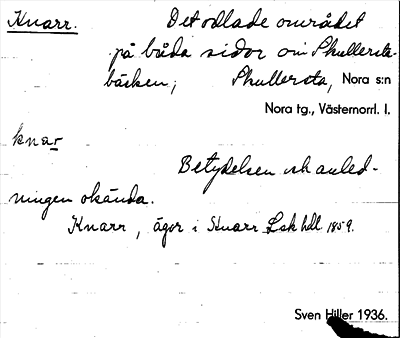 Knarr. Det odlade området
på båda sidor om Skullersta-
bäcken, Skullersta, Nora s:n
Nora tg., Västernorrl. l.
knar
Betydelsen och anled-
ningen okända.
Knarr, ägor i Knarr Lsk hdl 1859.
Sven Hiller 1936.